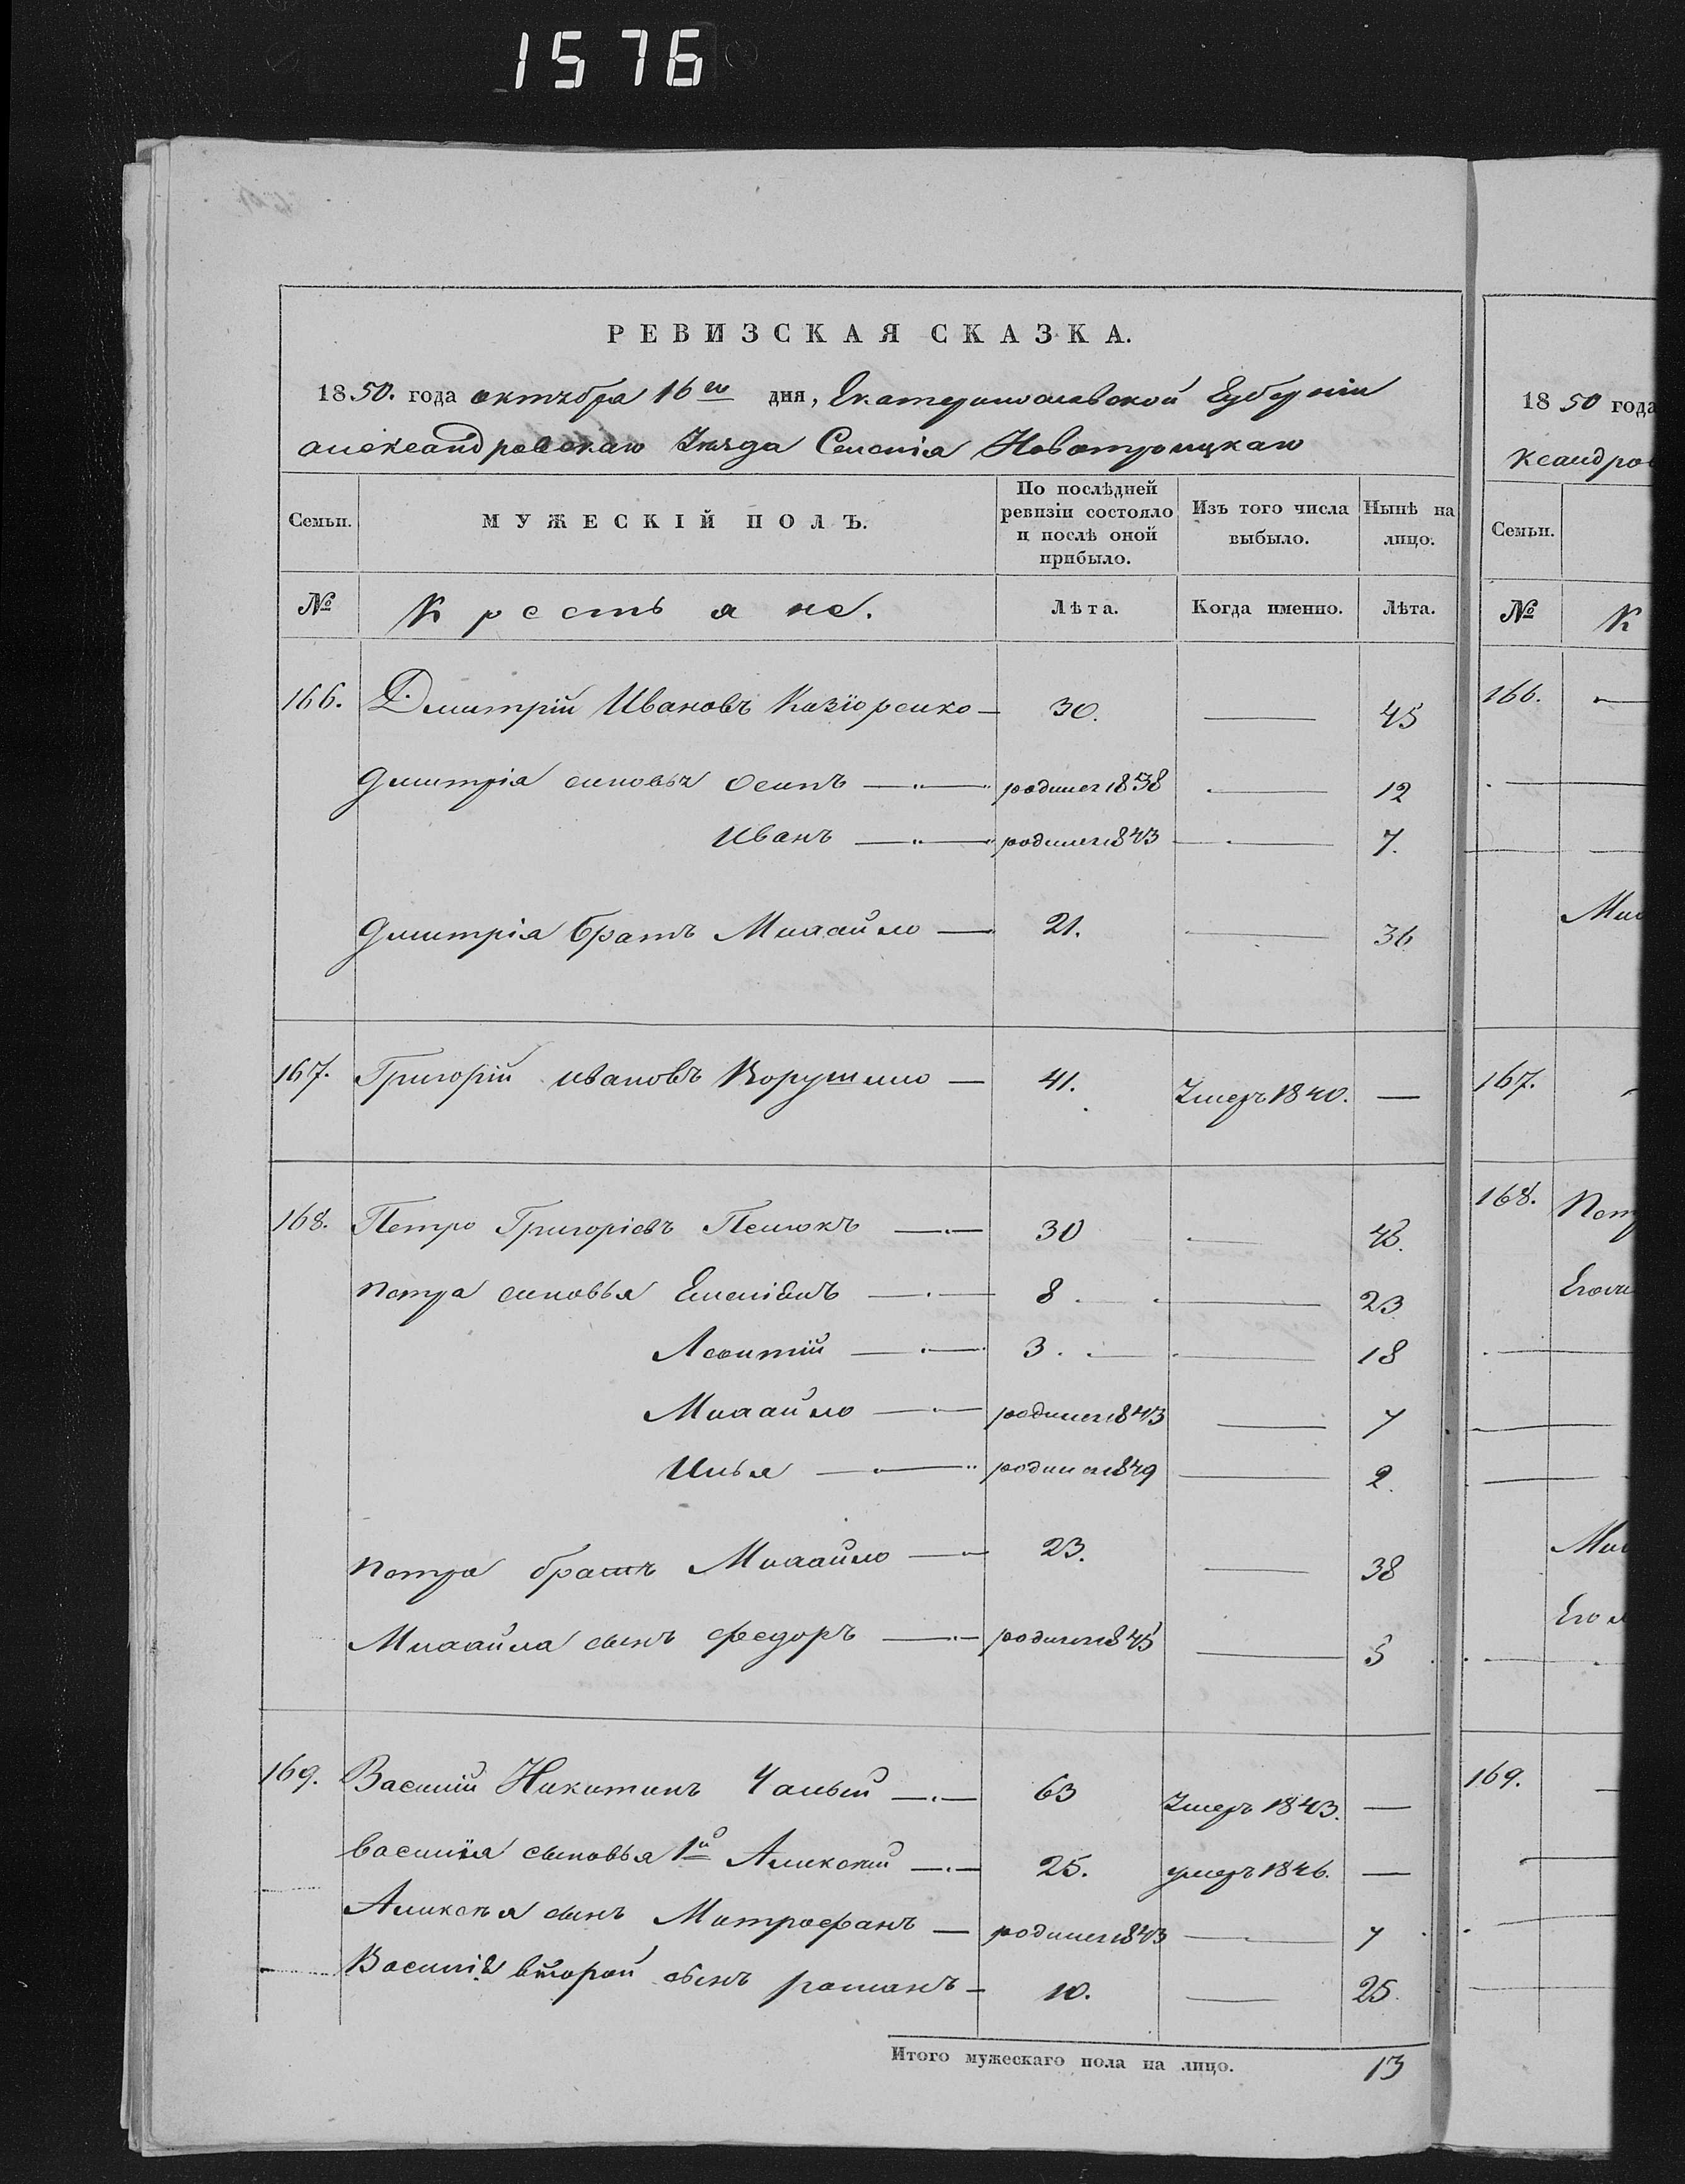 1576
РЕВИЗСКАЯ СКАЗКА.
1850. года октября 16го дня, Екатеринославской Губерніи
александровскаго Уѣзда Селенія Новотроицкаго
Семьи. МУЖЕСКІЙ ПОЛЪ. По послѣдней ревизіи состояло и послѣ оной прибыло. Изъ того числа выбыло. Нынѣ на лицо.
№ Крестьяне. Лѣта. Когда именно. Лѣта.
166. Дмитрій Ивановъ 30. — 45
Дмитрія синовья Осипъ — родился 1838 — 12
Иванъ — родился 1843 — 7.
Дмитрія братъ Михайло — 21. — 36
167. Григорій ивановъ — 41. Умеръ 1840. —
168. Петро Григоріевъ — 30 — 45.
петра синовья — 8. — 23
Леонтій — 3. — 18
Михайло — родился 1843 — 7
Илья — родился 1849 — 2.
петра братъ Михайло — 23. — 38
Михайла сынъ федоръ — родился 1845 — 5
169. Василій Никитинъ Чалый — 63 Умеръ 1843. —
василія сыновья 1й Алексей — 25. умеръ 1846. —
Алексея сынъ Митрофанъ — родился 1843 — 7
Василія второй сынъ романъ — 10. — 25.
Итого мужескаго пола на лицо. 13
18 50 года
ксандров
Семьи.
№ К
166. —
Мих
167.
168. Петр
Его
Мих
Его
169. —